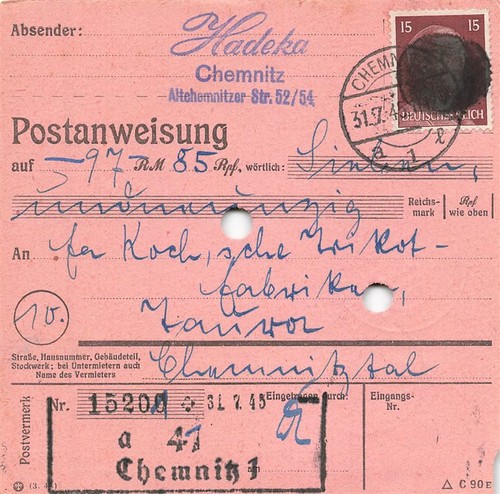 Absender:
Hadeka
Chemnitz
Altchemnitzer Str. 52/54
15 15
DEUTSCHES REICH
CHEMNITZ
31.7.45
a 1
Postanweisung
auf —97— RM 85 Rpf, wörtlich: Sieben,
undneunzig
Reichsmark
Rpf wie oben
An fa Koch,sche Trikot-
fabriken,
Taura
10.
Chemnitztal
Straße, Hausnummer, Gebäudeteil,
Stockwerk; bei Untermietern auch
Name des Vermieters
Postvermerk
Nr. 31.7.45
Eingetragen durch:
Eingangs-
Nr.
a 41
Chemnitz 1
C 90E